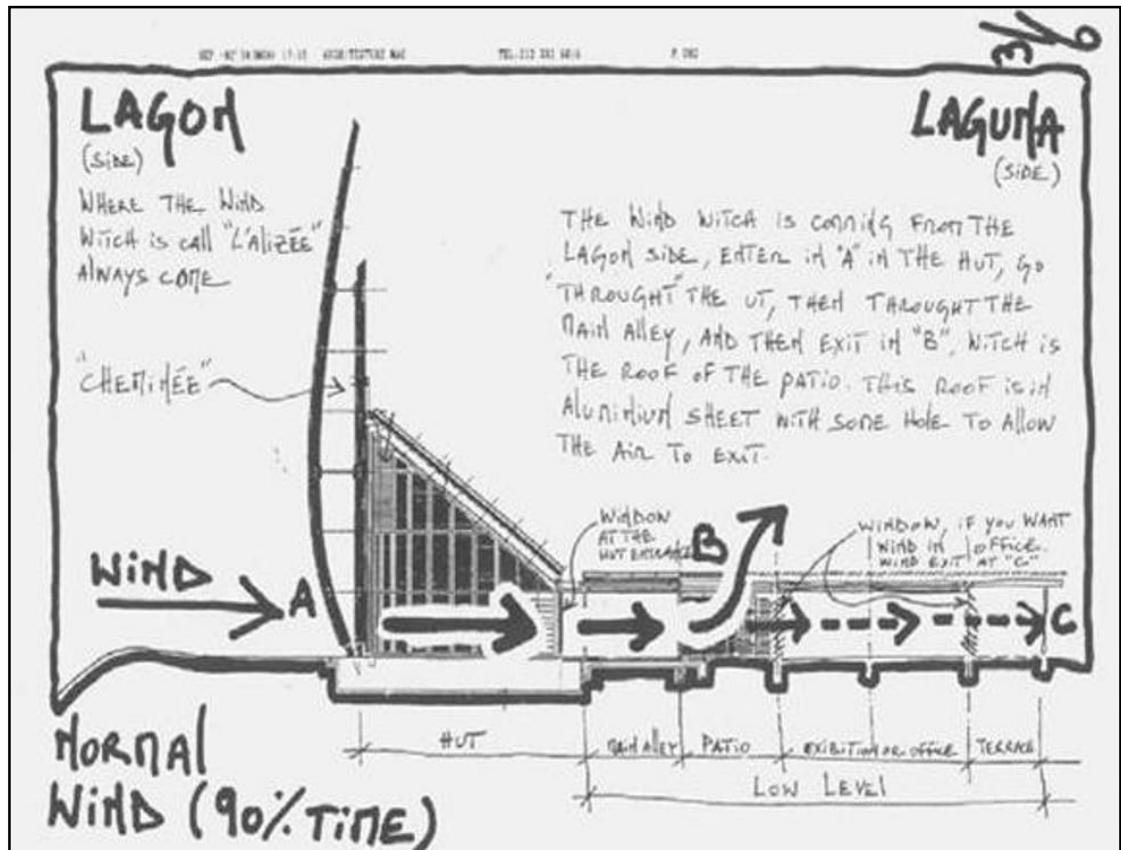 ARCHITECTURE MAG
3/6
LAGON
(SIDE)
WHERE THE WIND
WITCH IS CALL "L'ALIZÉE"
ALWAYS COME
"CHEMINÉE"
LAGUNA
(SIDE)
THE WIND WITCH IS COMING FROM THE
LAGON SIDE, ENTER IN "A" IN THE HUT, GO
"THROUGHT" THE UT, THEN THROUGHT THE
MAIN ALLEY, AND THEN EXIT IN "B", WITCH IS
THE ROOF OF THE PATIO. THIS ROOF IS IN
ALUMINIUM SHEET WITH SOME HOLE TO ALLOW
THE AIR TO EXIT.
WINDOW
AT THE
HUT ENTRANCE
B
WINDOW, IF YOU WANT
WIND IN OFFICE.
WIND EXIT AT "C"
WIND
A
C
HUT
MAIN ALLEY
PATIO
EXIBITION OR OFFICE
TERRACE
LOW LEVEL
NORMAL
WIND (90% TIME)